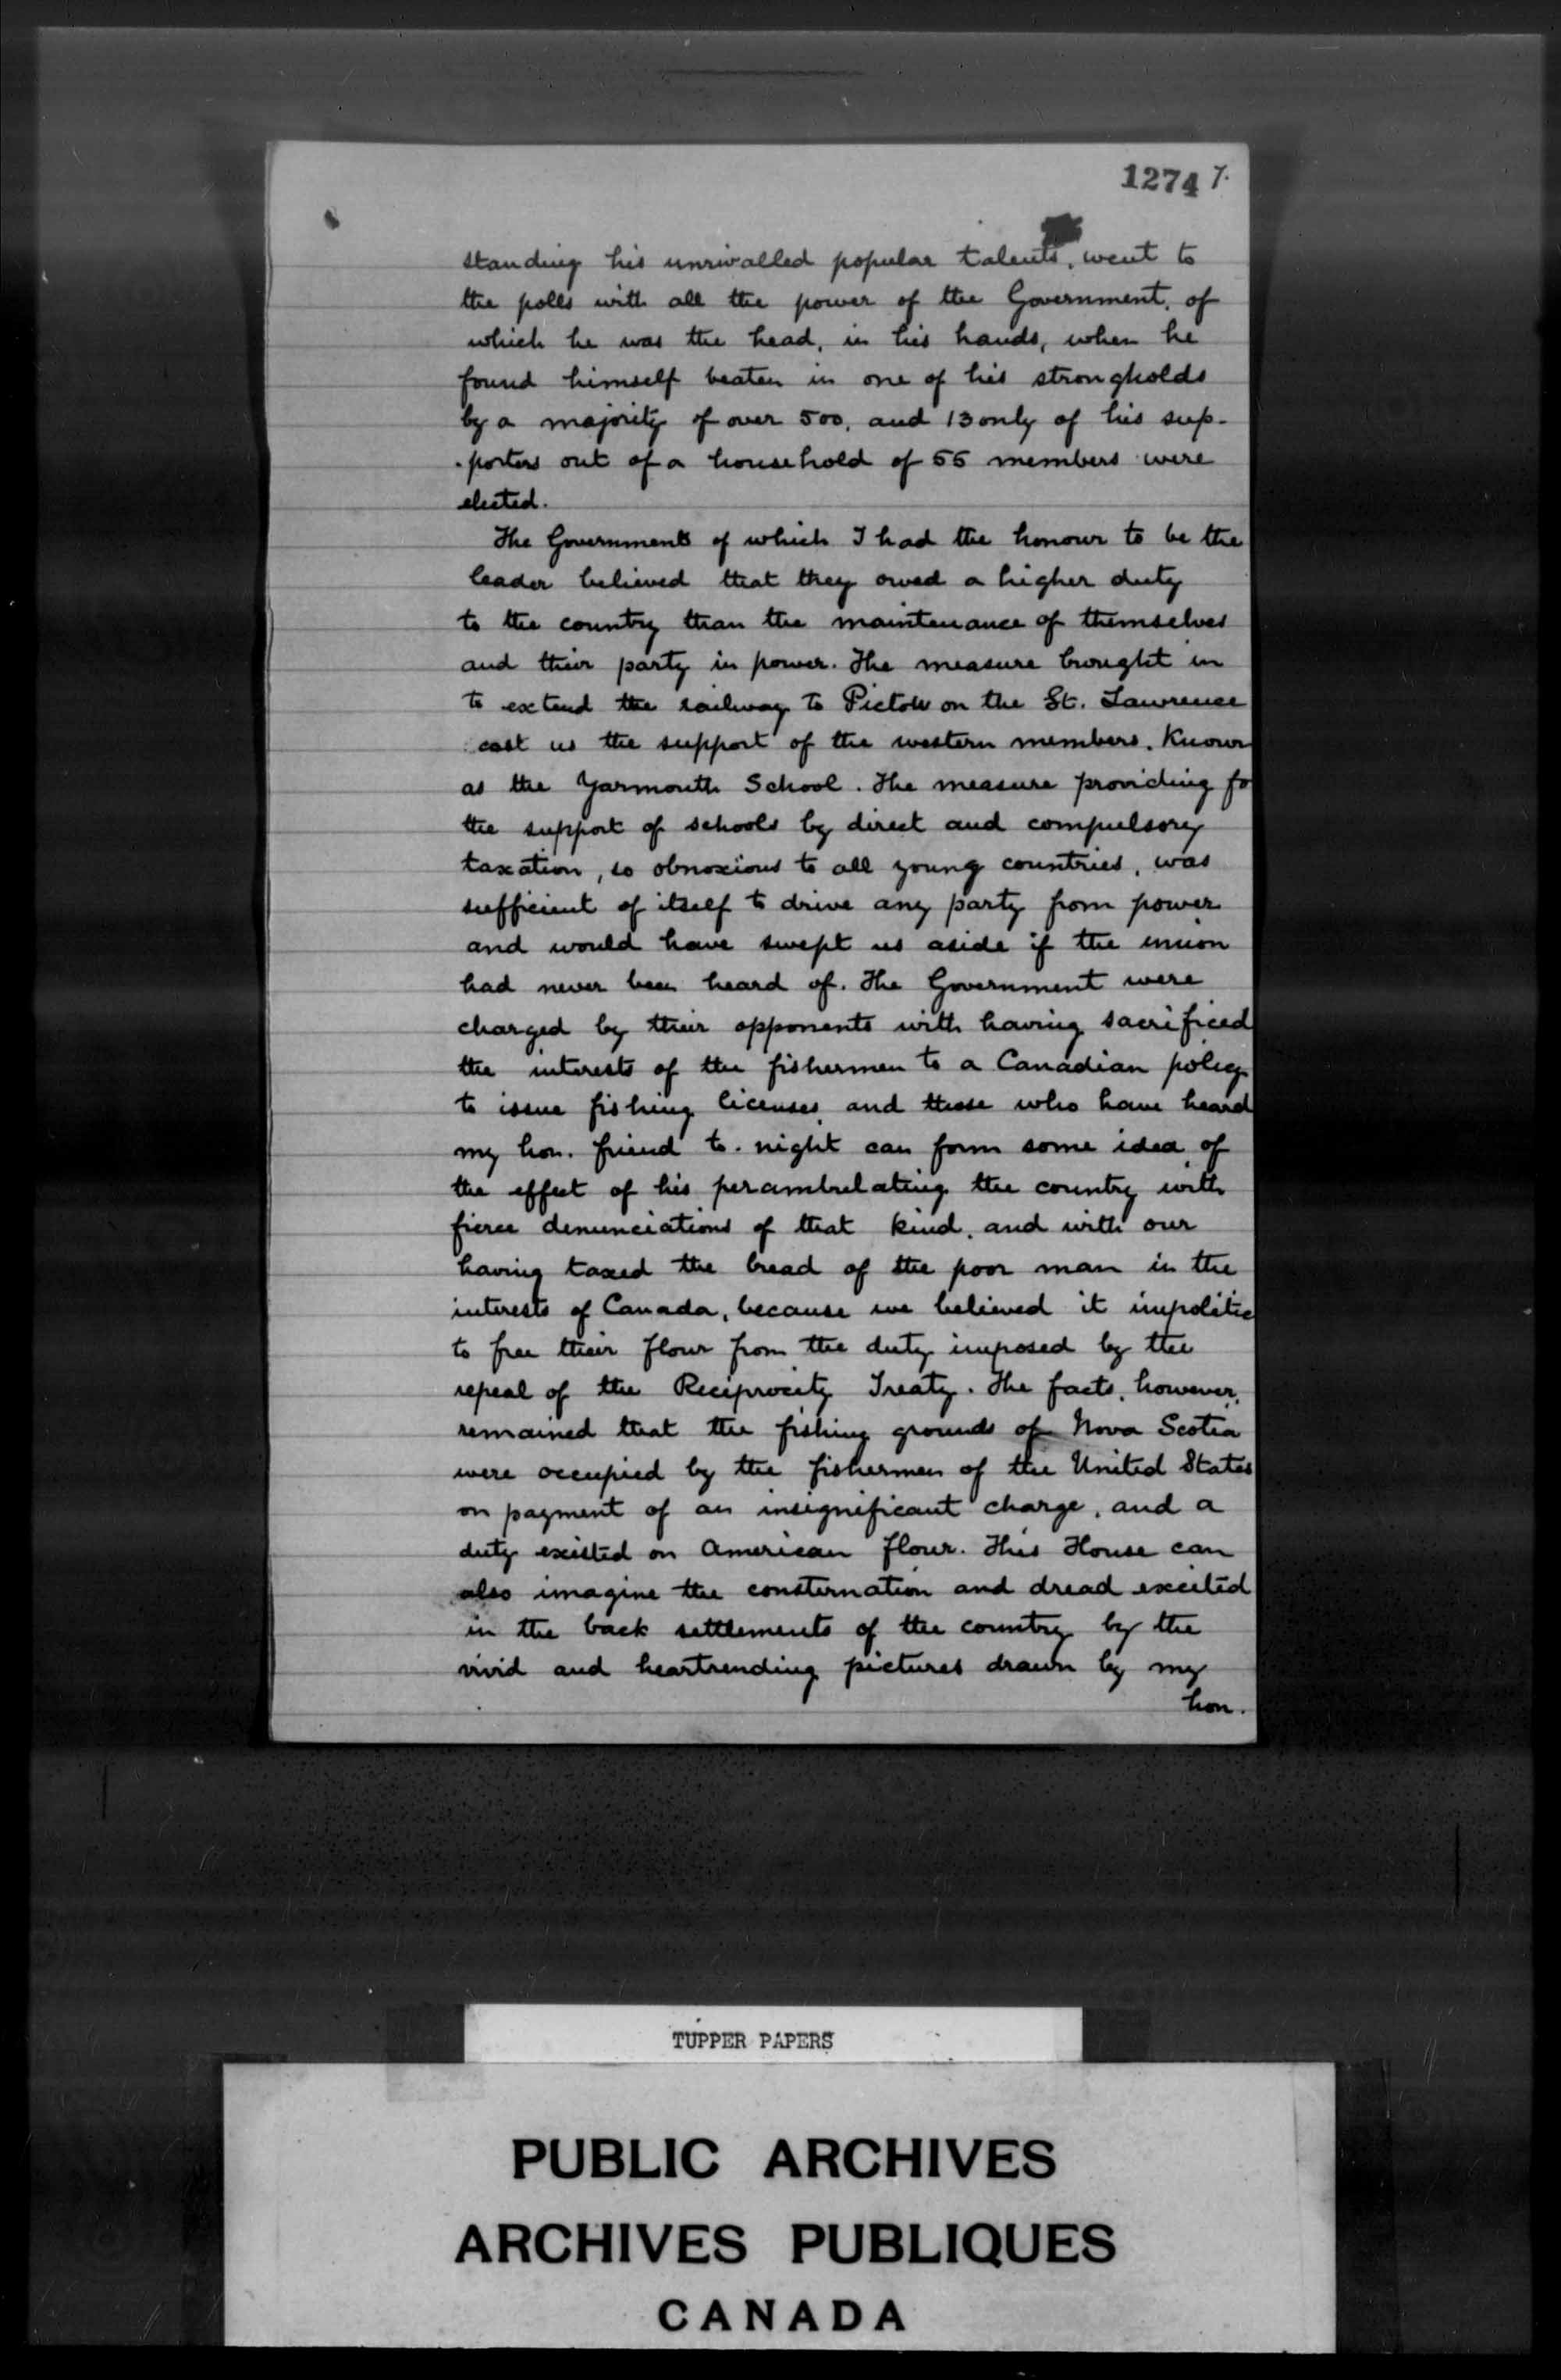 1274 7.
standing his unrivalled popular talents, went to
the polls with all the power of the Government, of
which he was the head, in his hands, when he
found himself beaten in one of his strongholds
by a majority of over 500, and 13 only of his sup-
-porters out of a household of 55 members were
elected.
The Government of which I had the honour to be the
leader believed that they owed a higher duty
to the country than the maintenance of themselves
and their party in power. The measure brought in
to extend the railway to Pictou on the St. Lawrence
cost us the support of the western members, known
as the Yarmouth School. The measure providing fo
the support of schools by direct and compulsory
taxation, so obnoxious to all young countries, was
sufficient of itself to drive any party from power
and would have swept us aside if the union
had never been heard of. The Government were
charged by their opponents with having sacrificed
the interests of the fishermen to a Canadian policy
to issue fishing licenses, and those who have heard
my hon. friend to-night can form some idea of
the effect of his perambulating the country with
fierce denunciations of that kind, and with our
having taxed the bread of the poor man in the
interests of Canada, because we believed it impolitic
to free their flour from the duty imposed by the
repeal of the Reciprocity Treaty. The facts, however,
remained that the fishing grounds of Nova Scotia
were occupied by the fishermen of the United States
on payment of an insignificant charge, and a
duty existed on American flour. This House can
also imagine the consternation and dread excited
in the back settlements of the country by the
vivid and heartrending pictures drawn by my
hon.
TUPPER PAPERS
PUBLIC ARCHIVES
ARCHIVES PUBLIQUES
CANADA